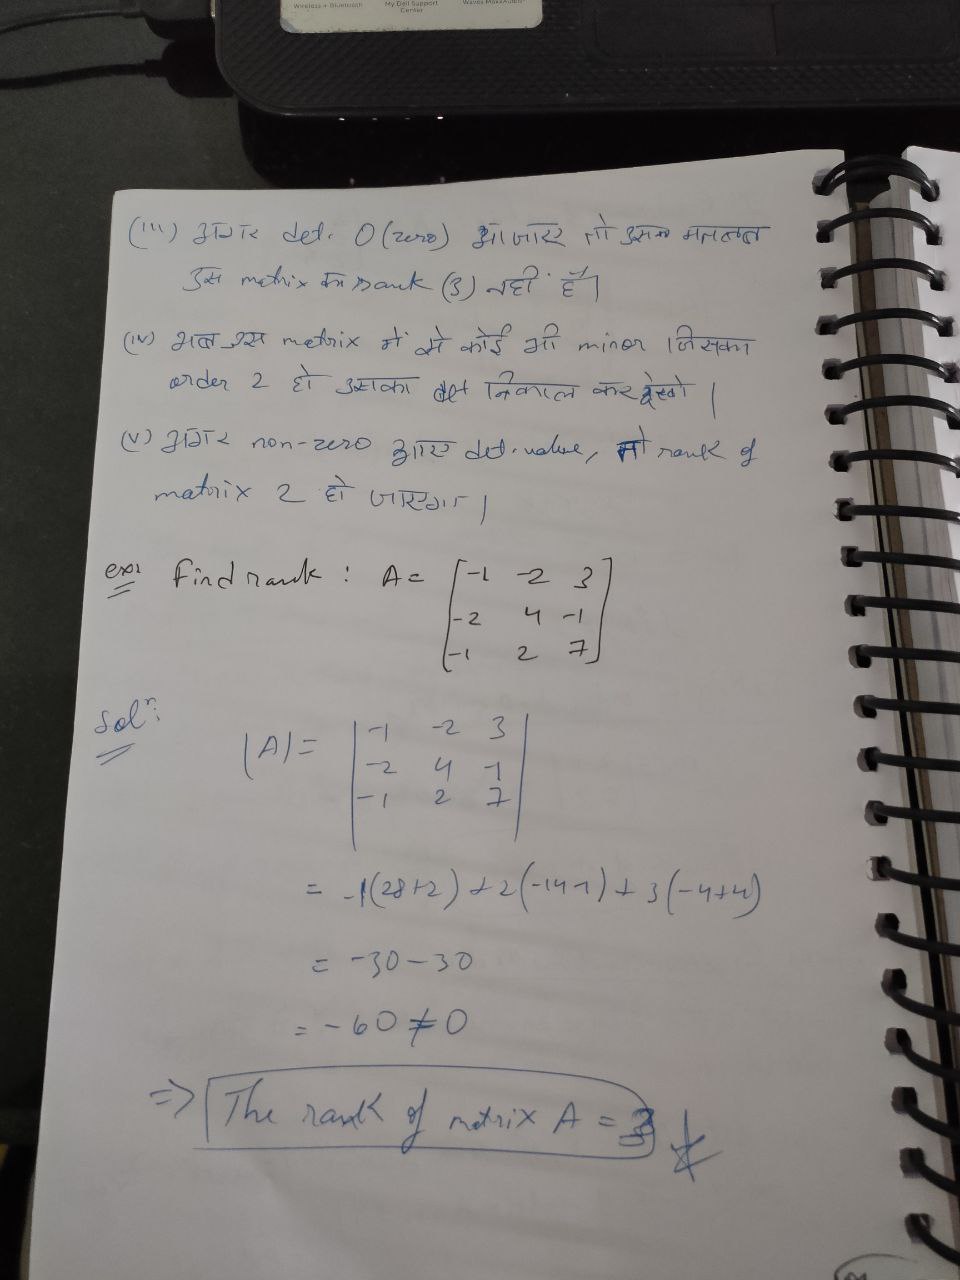 Wireless + Bluetooth
My Dell Support Center
Waves MaxxAudio
(iii) अगर det. 0 (zero) आ जाए तो उसका मतलब
उस matrix का rank (3) नहीं है।
(iv) अब उस matrix में से कोई भी minor जिसका
order 2 हो उसका det निकाल कर देखो।
(v) अगर non-zero आए det. value, तो rank of
matrix 2 हो जाएगा।
ex: Find rank : A = [-1 -2 3
-2 4 -1
-1 2 7]
Solⁿ:
|A| = |-1 -2 3
-2 4 -1
-1 2 7|
= -1(28+2) + 2(-14-1) + 3(-4+4)
= -30-30
= -60 ≠ 0
⇒ The rank of matrix A = 3